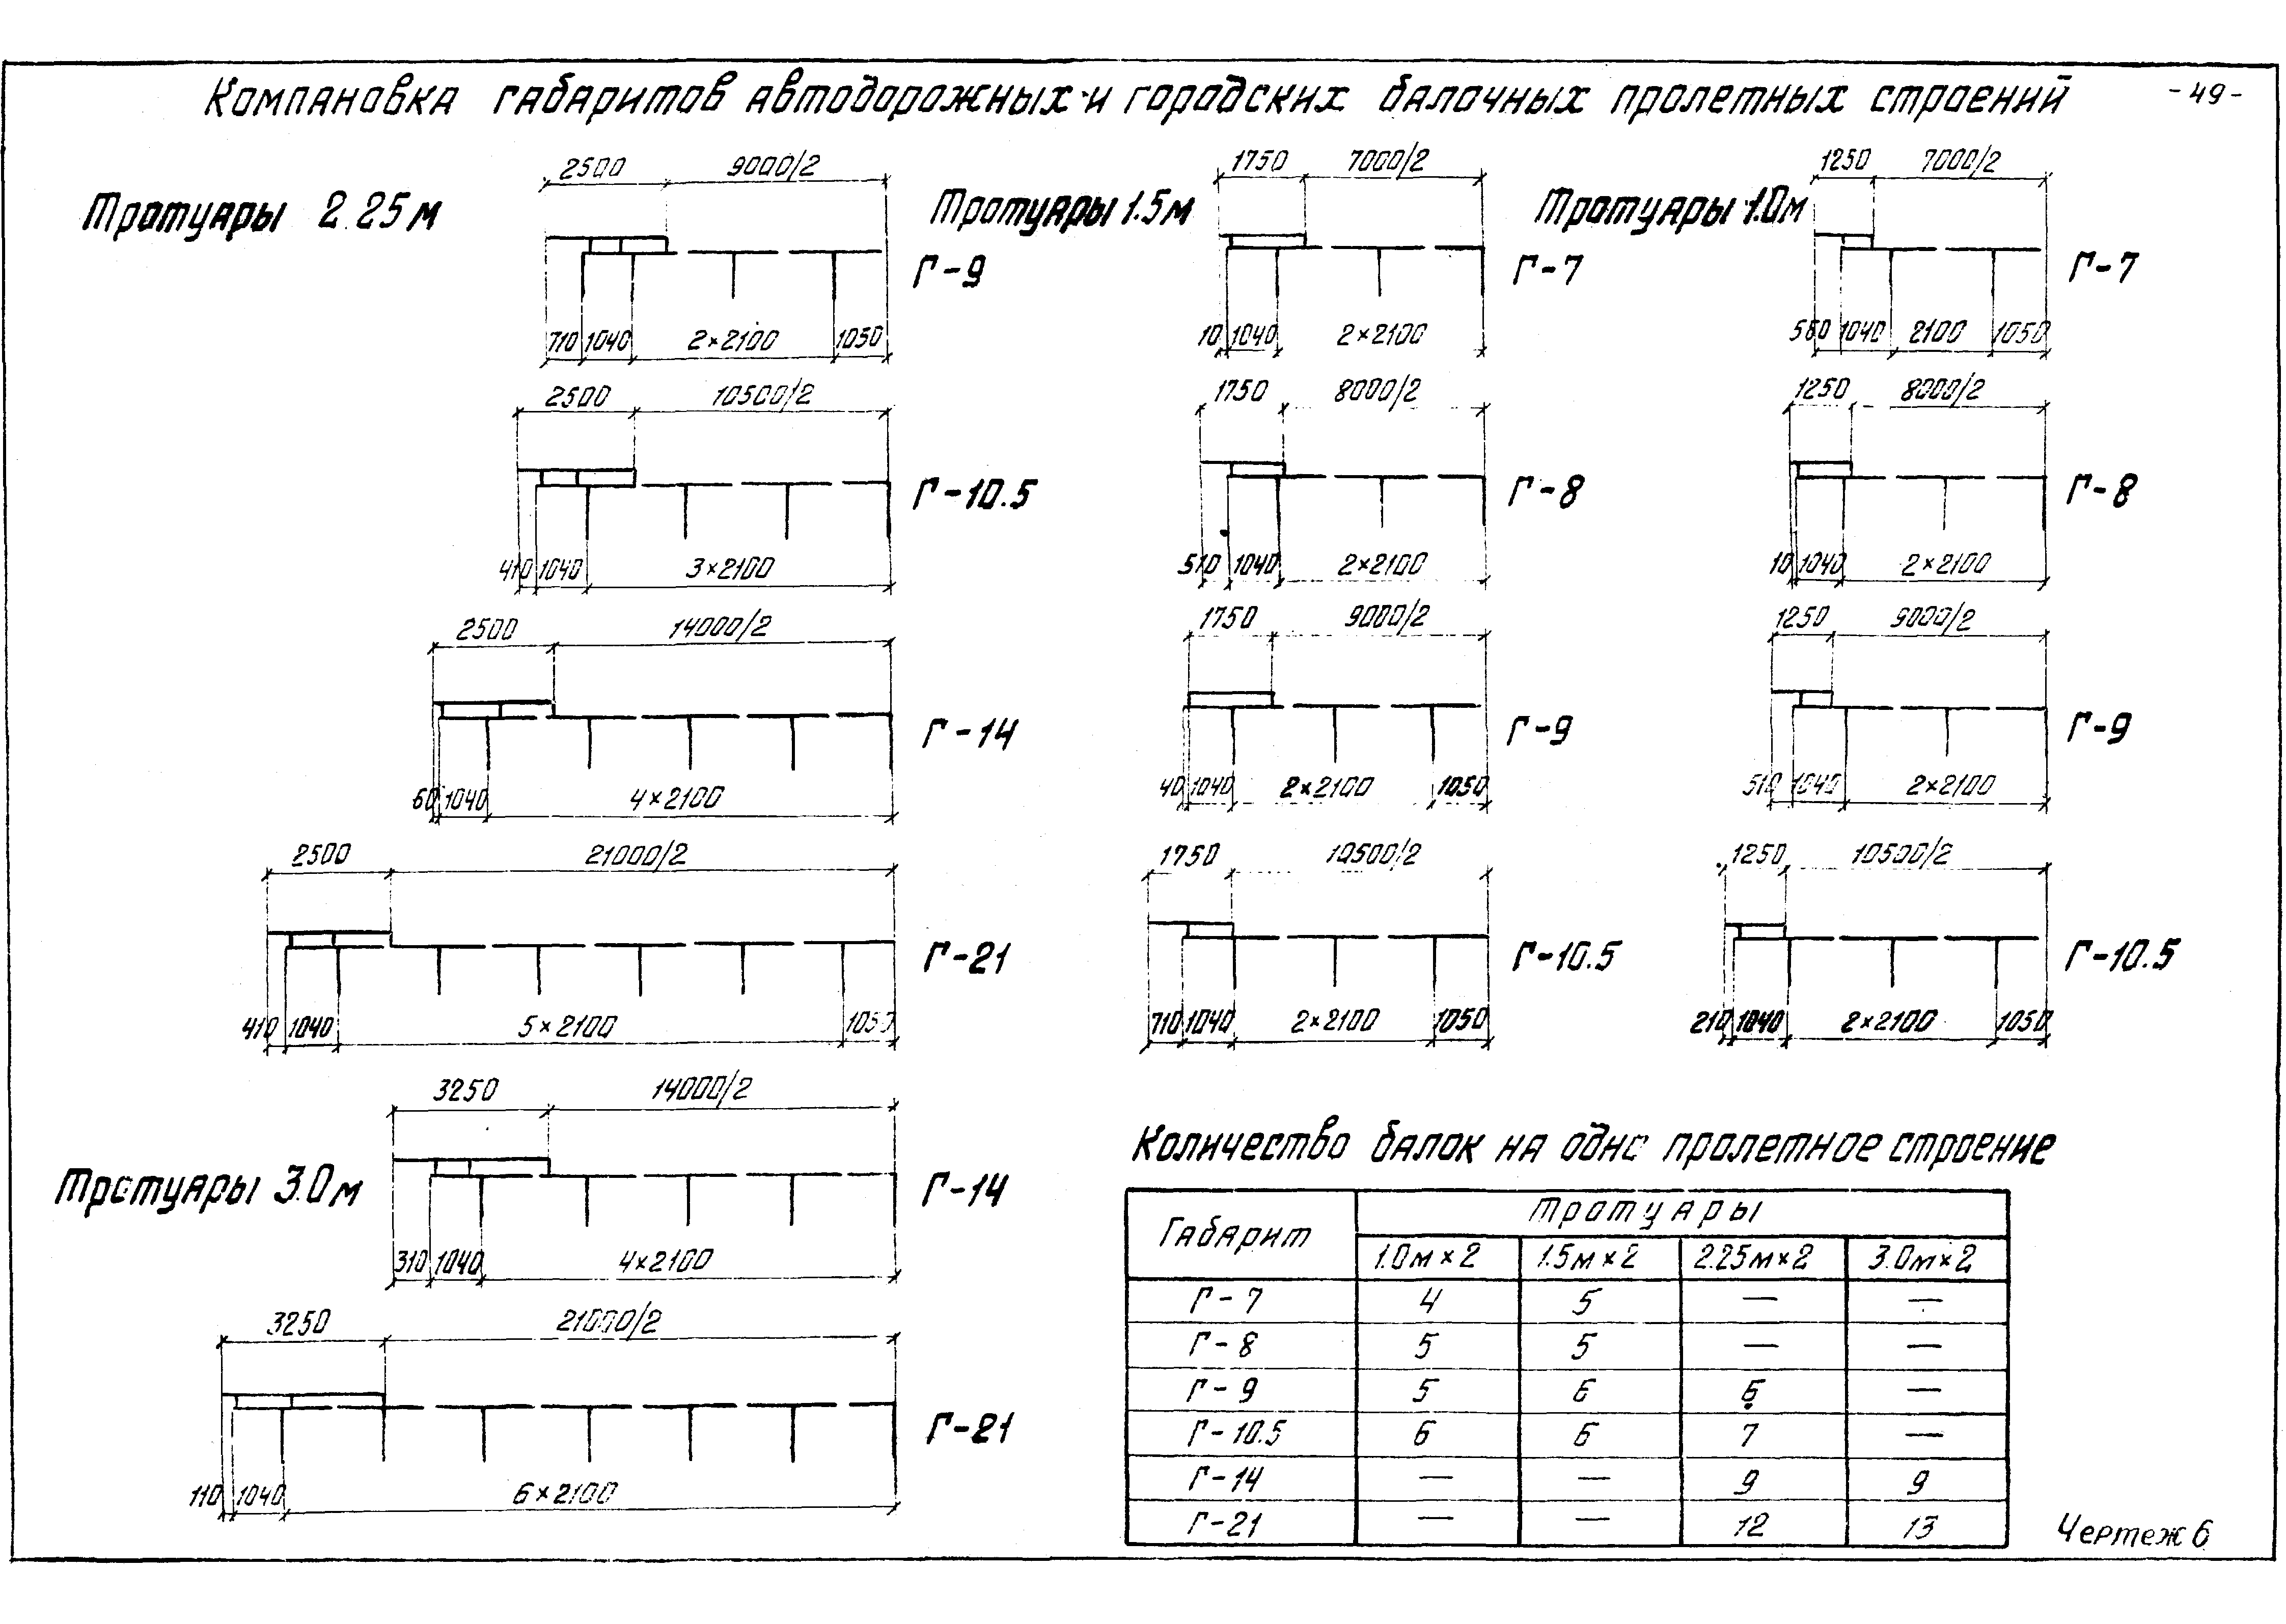 Компановка габаритов автодорожных и городских балочных пролетных строений
- 49 -
Тротуары 2.25м
2500 9000/2
Г-9
710 1040 2×2100 1050
2500 10500/2
Г-10.5
410 1040 3×2100
2500 14000/2
Г-14
60 1040 4×2100
2500 21000/2
Г-21
410 1040 5×2100 1050
Тротуары 3.0м
3250 14000/2
Г-14
310 1040 4×2100
3250 21000/2
Г-21
110 1040 6×2100
Тротуары 1.5м
1750 7000/2
Г-7
10 1040 2×2100
1750 8000/2
Г-8
510 1040 2×2100
1750 9000/2
Г-9
40 1040 2×2100 1050
1750 10500/2
Г-10.5
710 1040 2×2100 1050
Тротуары 1.0м
1250 7000/2
Г-7
560 1040 2100 1050
1250 8000/2
Г-8
10 1040 2×2100
1250 9000/2
Г-9
510 1040 2×2100
1250 10500/2
Г-10.5
210 1040 2×2100 1050
Количество балок на одно пролетное строение
Габарит Тротуары
1.0м×2 1.5м×2 2.25м×2 3.0м×2
Г-7 4 5 — —
Г-8 5 5 — —
Г-9 5 6 6 —
Г-10.5 6 6 7 —
Г-14 — — 9 9
Г-21 — — 12 13
Чертеж 6